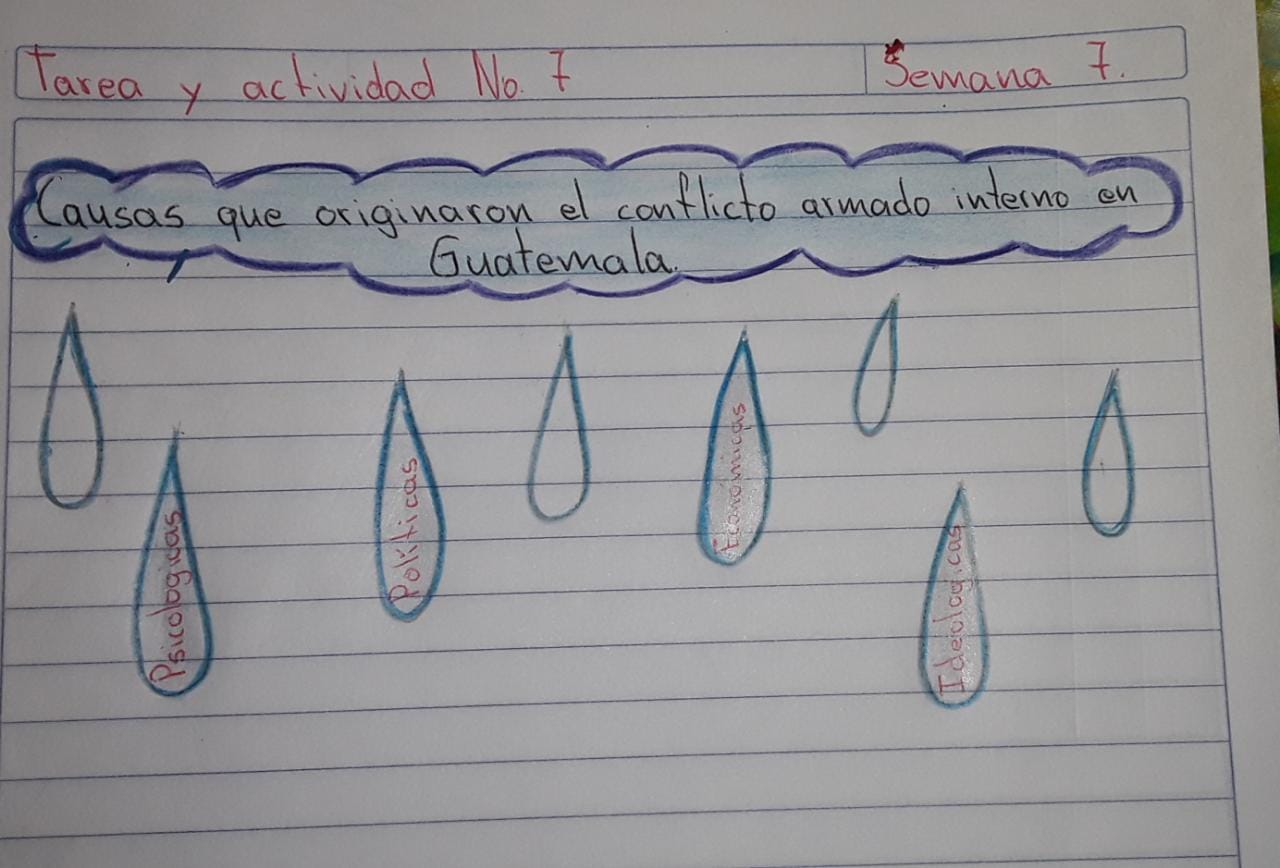 Tarea y actividad No. 7
Semana 7.
Causas que originaron el conflicto armado interno en
Guatemala.
Psicologicas
Políticas
Económicas
Ideologicas